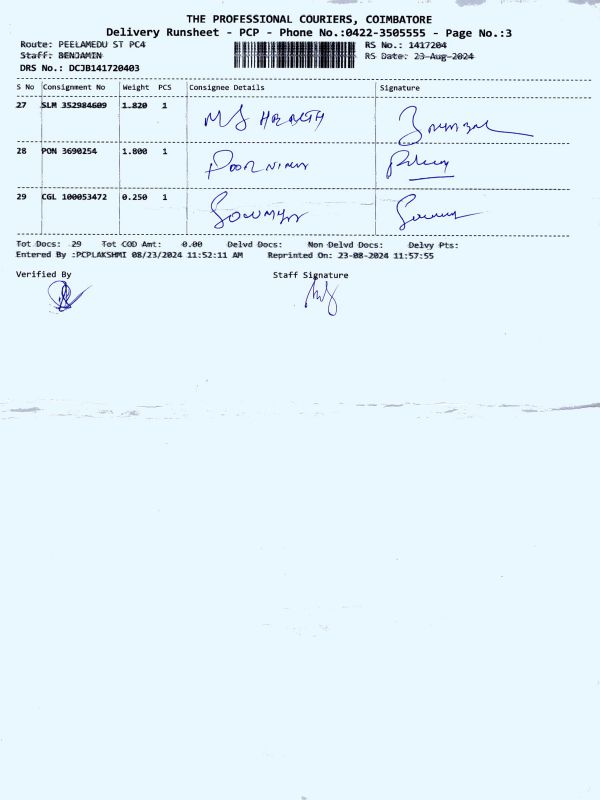 THE PROFESSIONAL COURIERS, COIMBATORE
Delivery Runsheet - PCP - Phone No.:0422-3505555 - Page No.:3
Route: PEELAMEDU ST PC4 RS No.: 1417204
Staff: BENJAMIN RS Date: 23-Aug-2024
DRS No.: DCJB141720403
S No Consignment No Weight PCS Consignee Details Signature
27 SLM 352984609 1.820 1 MS HEALTH
28 PON 3690254 1.800 1
29 CGL 100053472 0.250 1 Sowmya
Tot Docs: 29 Tot COD Amt: 0.00 Delvd Docs: Non Delvd Docs: Delvy Pts:
Entered By :PCPLAKSHMI 08/23/2024 11:52:11 AM Reprinted On: 23-08-2024 11:57:55
Verified By Staff Signature